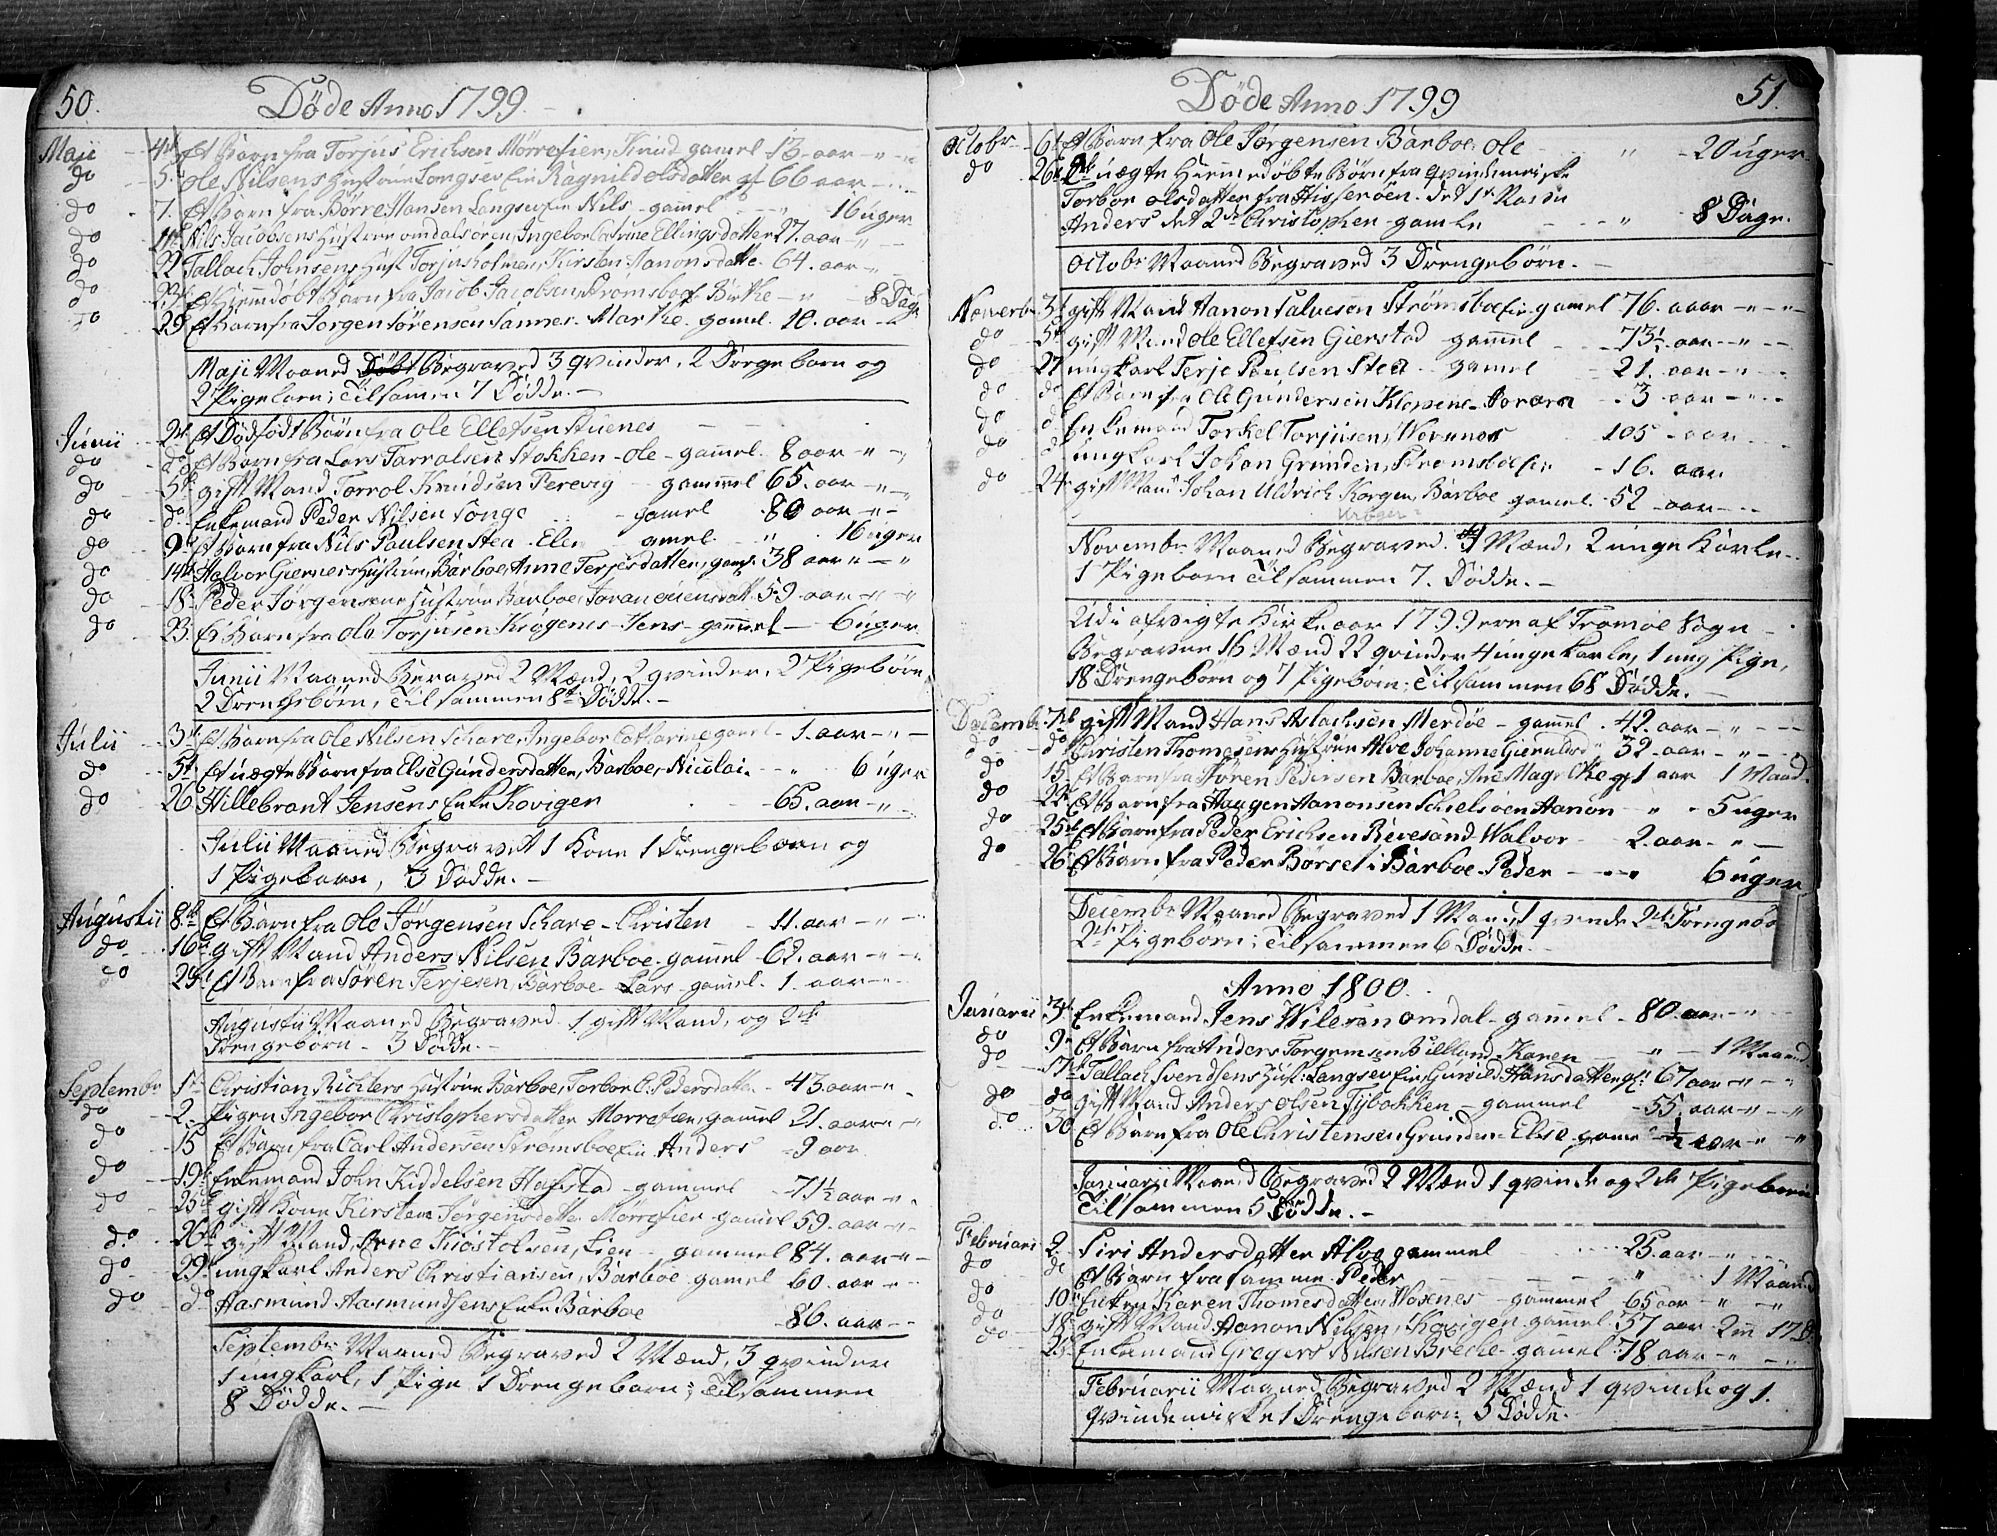 50.
Døde Anno 1799.
Maji 4de Et Barn fra Torjus Erichsen Mørrefier, Knud gamel 13. aar
do 5. Ole Nilsens Hustrue Longsev Ragnild Olsdatter 66 aar
do 7. Et Barn fra Børre Hansen Langsev Nils gamel 16 uger
do Nils Jacobsens Hustrue omdalsøren, Ingebor Ellingsdatter 27. aar
do 22 Tallach Johnsens Hust Torjusholmen, Kirsten Hanonsdatter 64. aar
do Et Hiemmdøbt Barn fra Jacob Jacobsen, Strømsboe Birthe 8 Dage
do 29 Et Barn fra Jørgen Sørensen Marthe gamel 10. aar
Maji Maaned Begraved 3 qvinder, 2 Drengebarn og
2 Pigebarn; Tilsamen 7 Dødde.
Junii 2de Et Dødfødt Børn fra Ole Ellefsen Huenes
do do Et Barn fra Lars Tarralsen Stokken Ole gammel 8 aar
do 5te gift Mand Torrol Knudsen Ferevig gammel 65. aar
do do Enkemand Peder Nilsen Songe gamel 80 aar
do 9de Et Barn fra Nils Paulsen Stea Elen gamel 16 uger
do 14de Halvor Hustrue, Barboe, Anne Terjesdatter, gam: 38 aar
do 18 Peder Jørgensens Hustrue Barboe, Joran 59 aar
do 23 Et Barn fra Ole Torjusen Krogenes Jens gammel 6 uger
Junii Maaned Beraved 2 Mænd, 2 qvinder, 2 Pigebørn,
2 Drengsbørn, Tilsammen 8te Dødde.
Julii 3de Et Barn fra Ole Nilsen Skare, Ingebor Catharine gamel 1. aar
do 5te Et uægte Barn fra Else Gundersdatter, Barboe, Nicolai 6 uger
do 26 Hillebrant Jensens Enke Kovigen 65. aar
Julii Maaned Begravet 1 Kone 1 Drengebarn og
1 Pigebarn, 3 Dødde.
Augustii 8de Et Barn fra Ole Jørgensen Skare Christen 11. aar
do 16de gift Mand Anders Nilsen Barboe gamel 62. aar
do Et Barn fra Søren Terjesen, Barboe Lars gamel. 1. aar
Augustii Maaned Begraved 1 gift Mand, og 2de
Drengebørn 3 Dødde.
Septembr 1te Christian Richters Hustrue Barboe, Torbor C. Pedersdatter 43. aar
do 2. Pigen Ingebor Christophersdatter Mørrefier, gammel 21. aar
do 15 Et Barn fra Carl Andersen Strømsboe Anders 9 aar
do 19de Enkemand John Kiddelsen Hafstad gammel 71½ aar
do 25de gift Kone Kirsten Jørgensdatter Mørrefier gamel 59. aar
do 26de gift Mand, Arne Kiøstolsen, Lien gammel 84. aar
do 29de ungkarl Anders Christiansen, Barboe gamel 60. aar
do do Aasmund Aasmundsens Enke Barboe 86. aar
Septembr Maaned Begraved 2 Mænd, 3 qvinder
1 ungkarl, 1 Pige 1 Drengebarn; Tilsammen
8 Dødde.
51.
Døde Anno 1799
Octobr 6te Et Barn fra Ole Jørgensen Barboe, Ole 20 uger
do 26 2de uægte Hiemmedøbte Børn fra qvindemenske
Torbor Olsdatter fra Hisserøen. det 1te
Anders det 2de Christopher gamle 8 Dage.
Octobr Maaned Begraved 3 Drengebørn.
Novembr 3de gift Mand Hanon Salvesen Strømsboe gamel 76. aaar
do 5te gift Mand Ole Ellefsen Gierstad gammel 73½. aar
do ungkarl Terje Paulsen Stea gamel 21. aar
do do Et Barn fra Ole Gundersen Kloppene 3 aar
do do Enkemand Torkel Torjusen, Wevenes 105 aar
do do ungkarl Johan Grunden, Strømsboe 16. aar
do 24 gift Mand Johan Uldrich Korgen, Barboe gamel. 52 aar
Krøger
Novembr Maaned Begraved. 4 Mænd, 2 unge Karle
1 Pigebarn Tilsammen 7. Dødde.
Udi afvigte Kirke aar 1799 ere af Tromøe Sogn
Begraven 16 Mænd 22 qvinder 4 unge Karle, 1 ung Pige,
18 Drengebørn og 7 Pigebørn; Tilsammen 68 Dødde.
Decembr gift Mand Hans Aslachsen Merdøe gamel 42. aar
do do Christen Thomesens Hustrue Alve Johanne 32. aar
do 15 Et Barn fra Søren Pedersen Barboe, Ane Magrethe gl 1 aar 1 Maad
do 22 Et Barn fra Haagen Hanonsen Schielsøen Hanon 5 uger
do 25de Et Barn fra Peder Erichsen Revesand Halvor 2. aar
do 26 Et Barn fra Peder Børsel i Barboe Peder 6 uger
Decembr Maaned Begraved 1 Mand, 1 qvinde 2de
2de Pigebørn; Tilsammen 6 Dødde.
Anno 1800.
Januarii 3de Enkemand Jens Wilesen omdal gammel 80. aar
do 9de Et Barn fra Anders Torgersen Karen 1 Maaned
do Tallach Svendsens Hust: Langsev Gunild Hansdatter gl: 67 aar
do do gift Mand Anders Olsen Tybokken gammel 55. aar
do 30 Et Barn fra Ole Christensen Grunden Else gamel ½ aar
Januarii Maaned Begraved 2 Mænd 1 qvinde og 2de Pigebørn
Tilsammen 5 Dødde.
Februarii 2. Siri Andersdatter Alve gammel 25. aar
do do Et Barn fra samme Peder 1 Maaned
do 10 Enken Karen Thomesdatter, Woxnes gammel 65 aar
do 18 gift Mand Hanon Nilsen, Kovigen gamel 57 aar 2 m 17 D:
do Enkemand Gregers Nilsen Breche gamel 78 aar
Februarii Maaned Begraved 2 Mænd 1 qvinde og 1.
qvindemiske 1 Drengebarn; 5 Dødde.